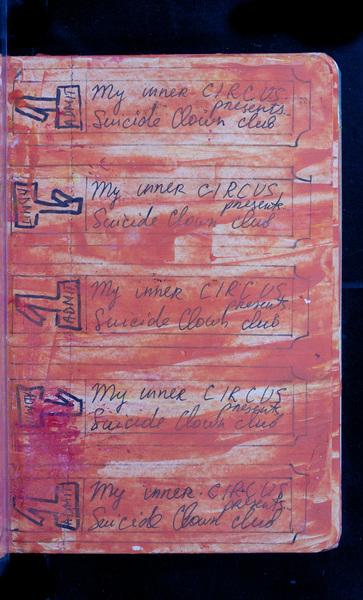 ADMIT
My inner CIRCUS
presents
Suicide Clown club
My inner CIRCUS,
presents
Suicide Clown club
ADMIT
My inner CIRCUS
presents
Suicide Clown club
My inner CIRCUS
presents
Suicide Clown club
ADMIT
My inner CIRCUS
presents
Suicide Clown club